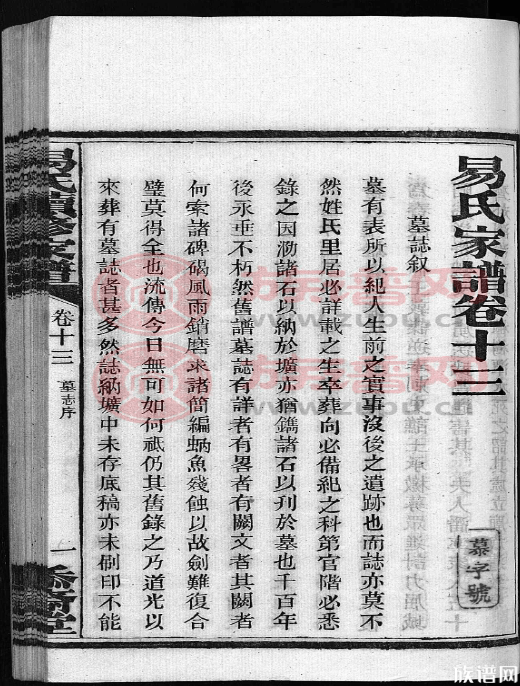 易氏家譜卷十三
慕字號
墓誌叙
墓有表所以紀人生前之實事沒後之遺跡也而誌亦莫不
然姓氏里居必詳載之生卒葬向必備紀之科第官階必悉
錄之因泐諸石以納於壙亦猶鐫諸石以刊於墓也千百年
後永垂不朽然舊譜墓誌有詳者有畧者有闕文者其闕者
何索諸碑碣風雨銷磨求諸簡編蜹魚殘蝕以故劍難復合
璧莫得全也流傳今日無可如何祇仍其舊錄之乃道光以
來葬有墓誌者甚多然誌納壙中未存底稿亦未刷印不能
易氏續修家譜
卷十三
墓志序
一
族谱网
www.zupu.cn
族谱网